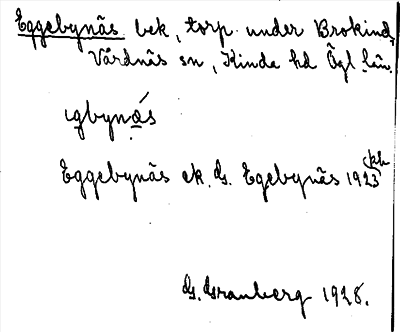 Eggebynäs bek, torp under Brokind,
Vårdnäs sn, Kinda hd Ögl. län.
ıgbynás
Eggebynäs ek. ds. Egebynäs 1923 kb
G. Granberg 1928.